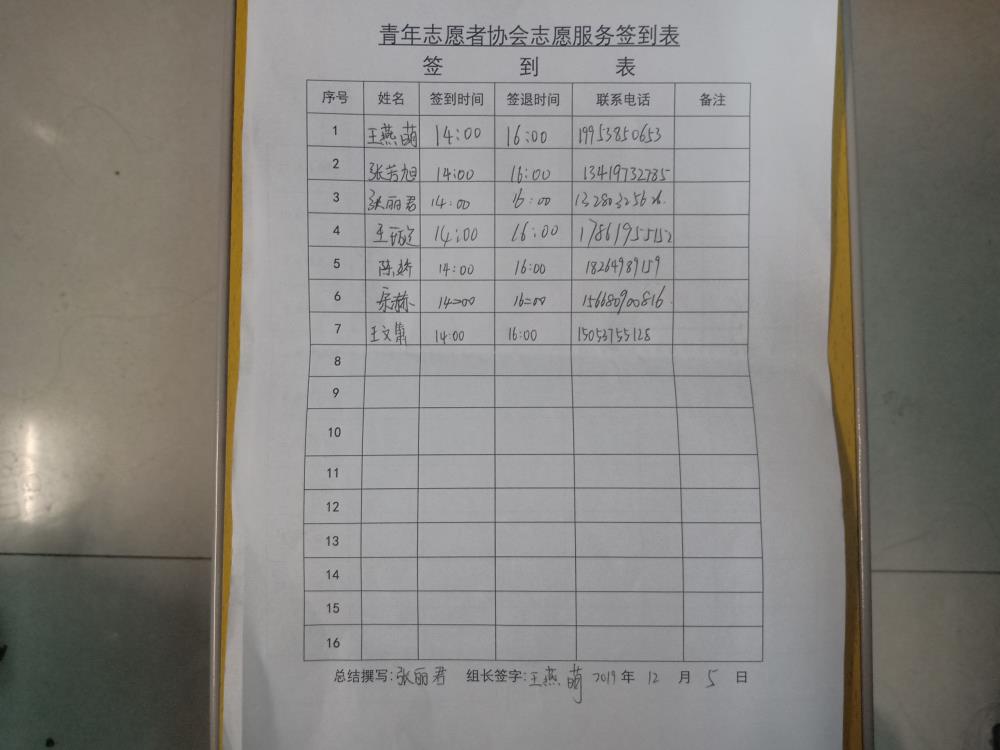 青年志愿者协会志愿服务签到表
签 到 表
序号 姓名 签到时间 签退时间 联系电话 备注
1 王燕萌 14:00 16:00 19953850653
2 张芳旭 14:00 16:00 13419732785
3 张丽君 14:00 16:00
4 14:00 16:00 17861955152
5 陈娇 14:00 16:00 18264989159
6 14:00 16:00 15668900816
7 王文隽 14:00 16:00 15053755128
8
9
10
11
12
13
14
15
16
总结撰写:张丽君 组长签字:王燕萌 2019年 12 月 5 日